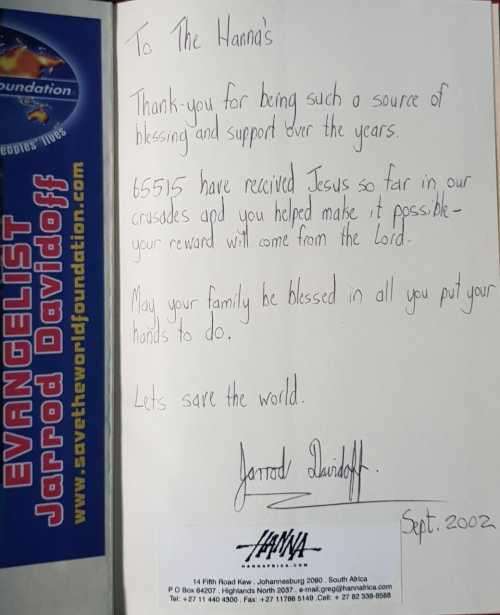 oundation
eoples' lives
EVANGELIST
Jarrod Davidoff
www.savetheworldfoundation.com
To The Hanna's
Thank-you for being such a source of
blessing and support over the years.
65515 have received Jesus so far in our
crusades and you helped make it possible-
your reward will come from the Lord.
May your family be blessed in all you put your
hands to do.
Lets save the world.
Jarrod Davidoff.
Sept. 2002
HANNA
HANNAFRICA.COM
14 Fifth Road Kew . Johannesburg 2090 . South Africa
P O Box 64207 . Highlands North 2037 . e-mail:greg@hannafrica.com
Tel: +27 11 440 4300 . Fax: +27 11786 5149 .Cell: + 27 82 338-8588